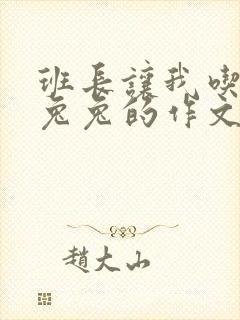 班长让我喫
兔兔的作文
趙大山